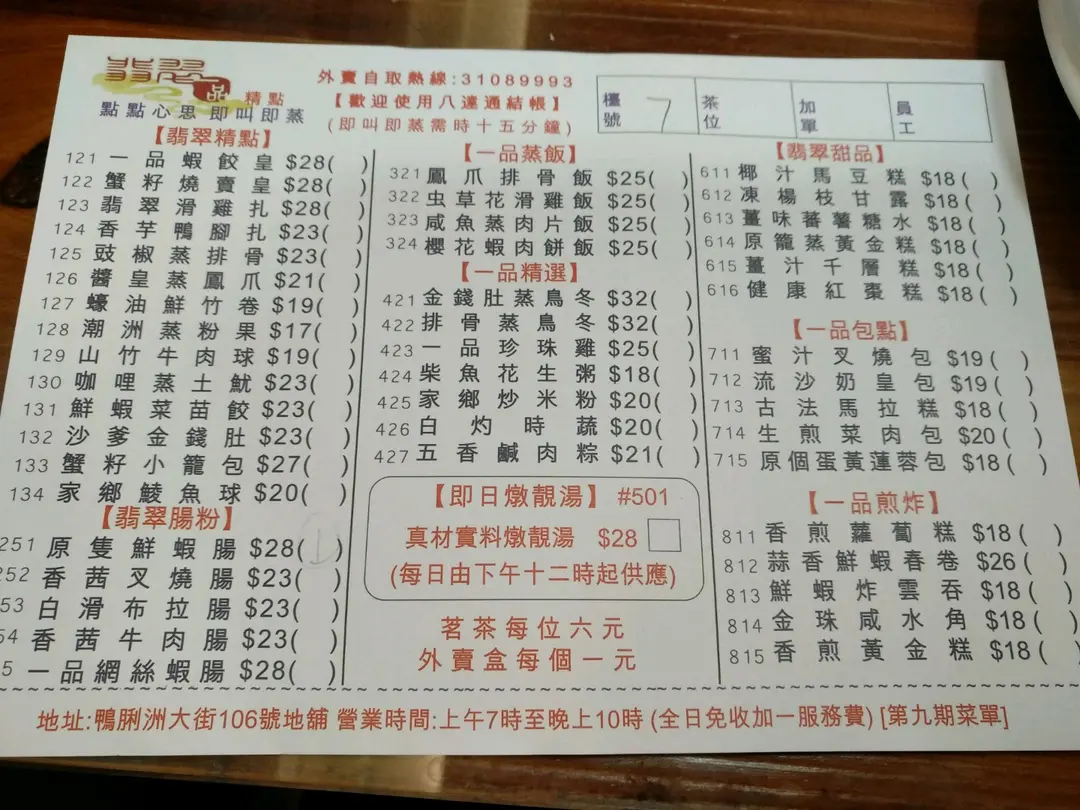 翡翠
一品
精點
點點心思 即叫即蒸
外賣自取熱線:31089993
【歡迎使用八達通結帳】
(即叫即蒸需時十五分鐘)
檯號 7 茶位 加單 員工
【翡翠精點】
121 一品蝦餃皇 $28( )
122 蟹籽燒賣皇 $28( )
123 翡翠滑雞扎 $28( )
124 香芋鴨腳扎 $23( )
125 豉椒蒸排骨 $23( )
126 醬皇蒸鳳爪 $21( )
127 蠔油鮮竹卷 $19( )
128 潮洲蒸粉果 $17( )
129 山竹牛肉球 $19( )
130 咖哩蒸土魷 $23( )
131 鮮蝦菜苗餃 $23( )
132 沙爹金錢肚 $23( )
133 蟹籽小籠包 $27( )
134 家鄉鯪魚球 $20( )
【翡翠腸粉】
251 原隻鮮蝦腸 $28( )
252 香茜叉燒腸 $23( )
53 白滑布拉腸 $23( )
54 香茜牛肉腸 $23( )
5 一品網絲蝦腸 $28( )
【一品蒸飯】
321 鳳爪排骨飯 $25( )
322 虫草花滑雞飯 $25( )
323 咸魚蒸肉片飯 $25( )
324 櫻花蝦肉餅飯 $25( )
【一品精選】
421 金錢肚蒸鳥冬 $32( )
422 排骨蒸鳥冬 $32( )
423 一品珍珠雞 $25( )
424 柴魚花生粥 $18( )
425 家鄉炒米粉 $20( )
426 白灼時蔬 $20( )
427 五香鹹肉粽 $21( )
【即日燉靚湯】 #501
真材實料燉靚湯 $28
(每日由下午十二時起供應)
茗茶每位六元
外賣盒每個一元
【翡翠甜品】
611 椰汁馬豆糕 $18( )
612 凍楊枝甘露 $18( )
613 薑味蕃薯糖水 $18( )
614 原籠蒸黃金糕 $18( )
615 薑汁千層糕 $18( )
616 健康紅棗糕 $18( )
【一品包點】
711 蜜汁叉燒包 $19( )
712 流沙奶皇包 $19( )
713 古法馬拉糕 $18( )
714 生煎菜肉包 $20( )
715 原個蛋黃蓮蓉包 $18( )
【一品煎炸】
811 香煎蘿蔔糕 $18( )
812 蒜香鮮蝦春卷 $26( )
813 鮮蝦炸雲吞 $18( )
814 金珠咸水角 $18( )
815 香煎黃金糕 $18(
地址:鴨脷洲大街106號地舖 營業時間:上午7時至晚上10時 (全日免收加一服務費) [第九期菜單]